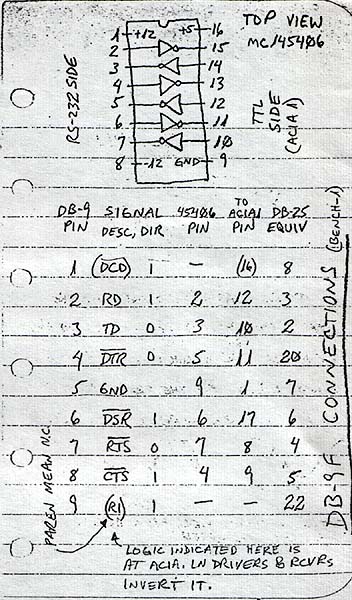 TOP VIEW
MC145406
1 +12 +5 16
2 15
3 14
4 13
5 12
6 11
7 10
8 -12 GND 9
RS-232 SIDE
TTL
SIDE
(ACIA 1)
DB-9 SIGNAL 45406 TO DB-25
PIN DESC, DIR PIN ACIA1 EQUIV
PIN
1 (DCD) 1 — (16) 8
2 RD 1 2 12 3
3 TD 0 3 10 2
4 DTR 0 5 11 20
5 GND 9 1 7
6 DSR 1 6 17 6
7 RTS 0 7 8 4
8 CTS 1 4 9 5
9 (RI) 1 — — 22
PAREN MEAN N.C.
LOGIC INDICATED HERE IS
AT ACIA. LN DRIVERS & RCVRS
INVERT IT.
DB-9F CONNECTIONS (BENCH-1)